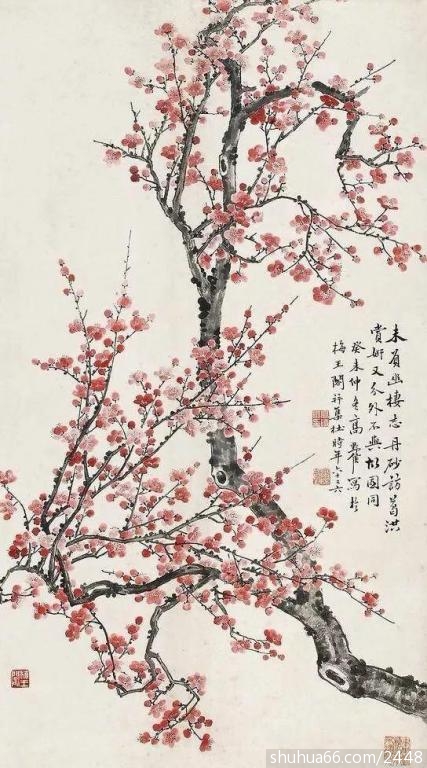 未負幽棲志丹砂訪葛洪
賞妍又分外不與故園同
癸未仲冬高野侯寫於
梅王閣並篆杜時年六十六
shuhua66.com/2448